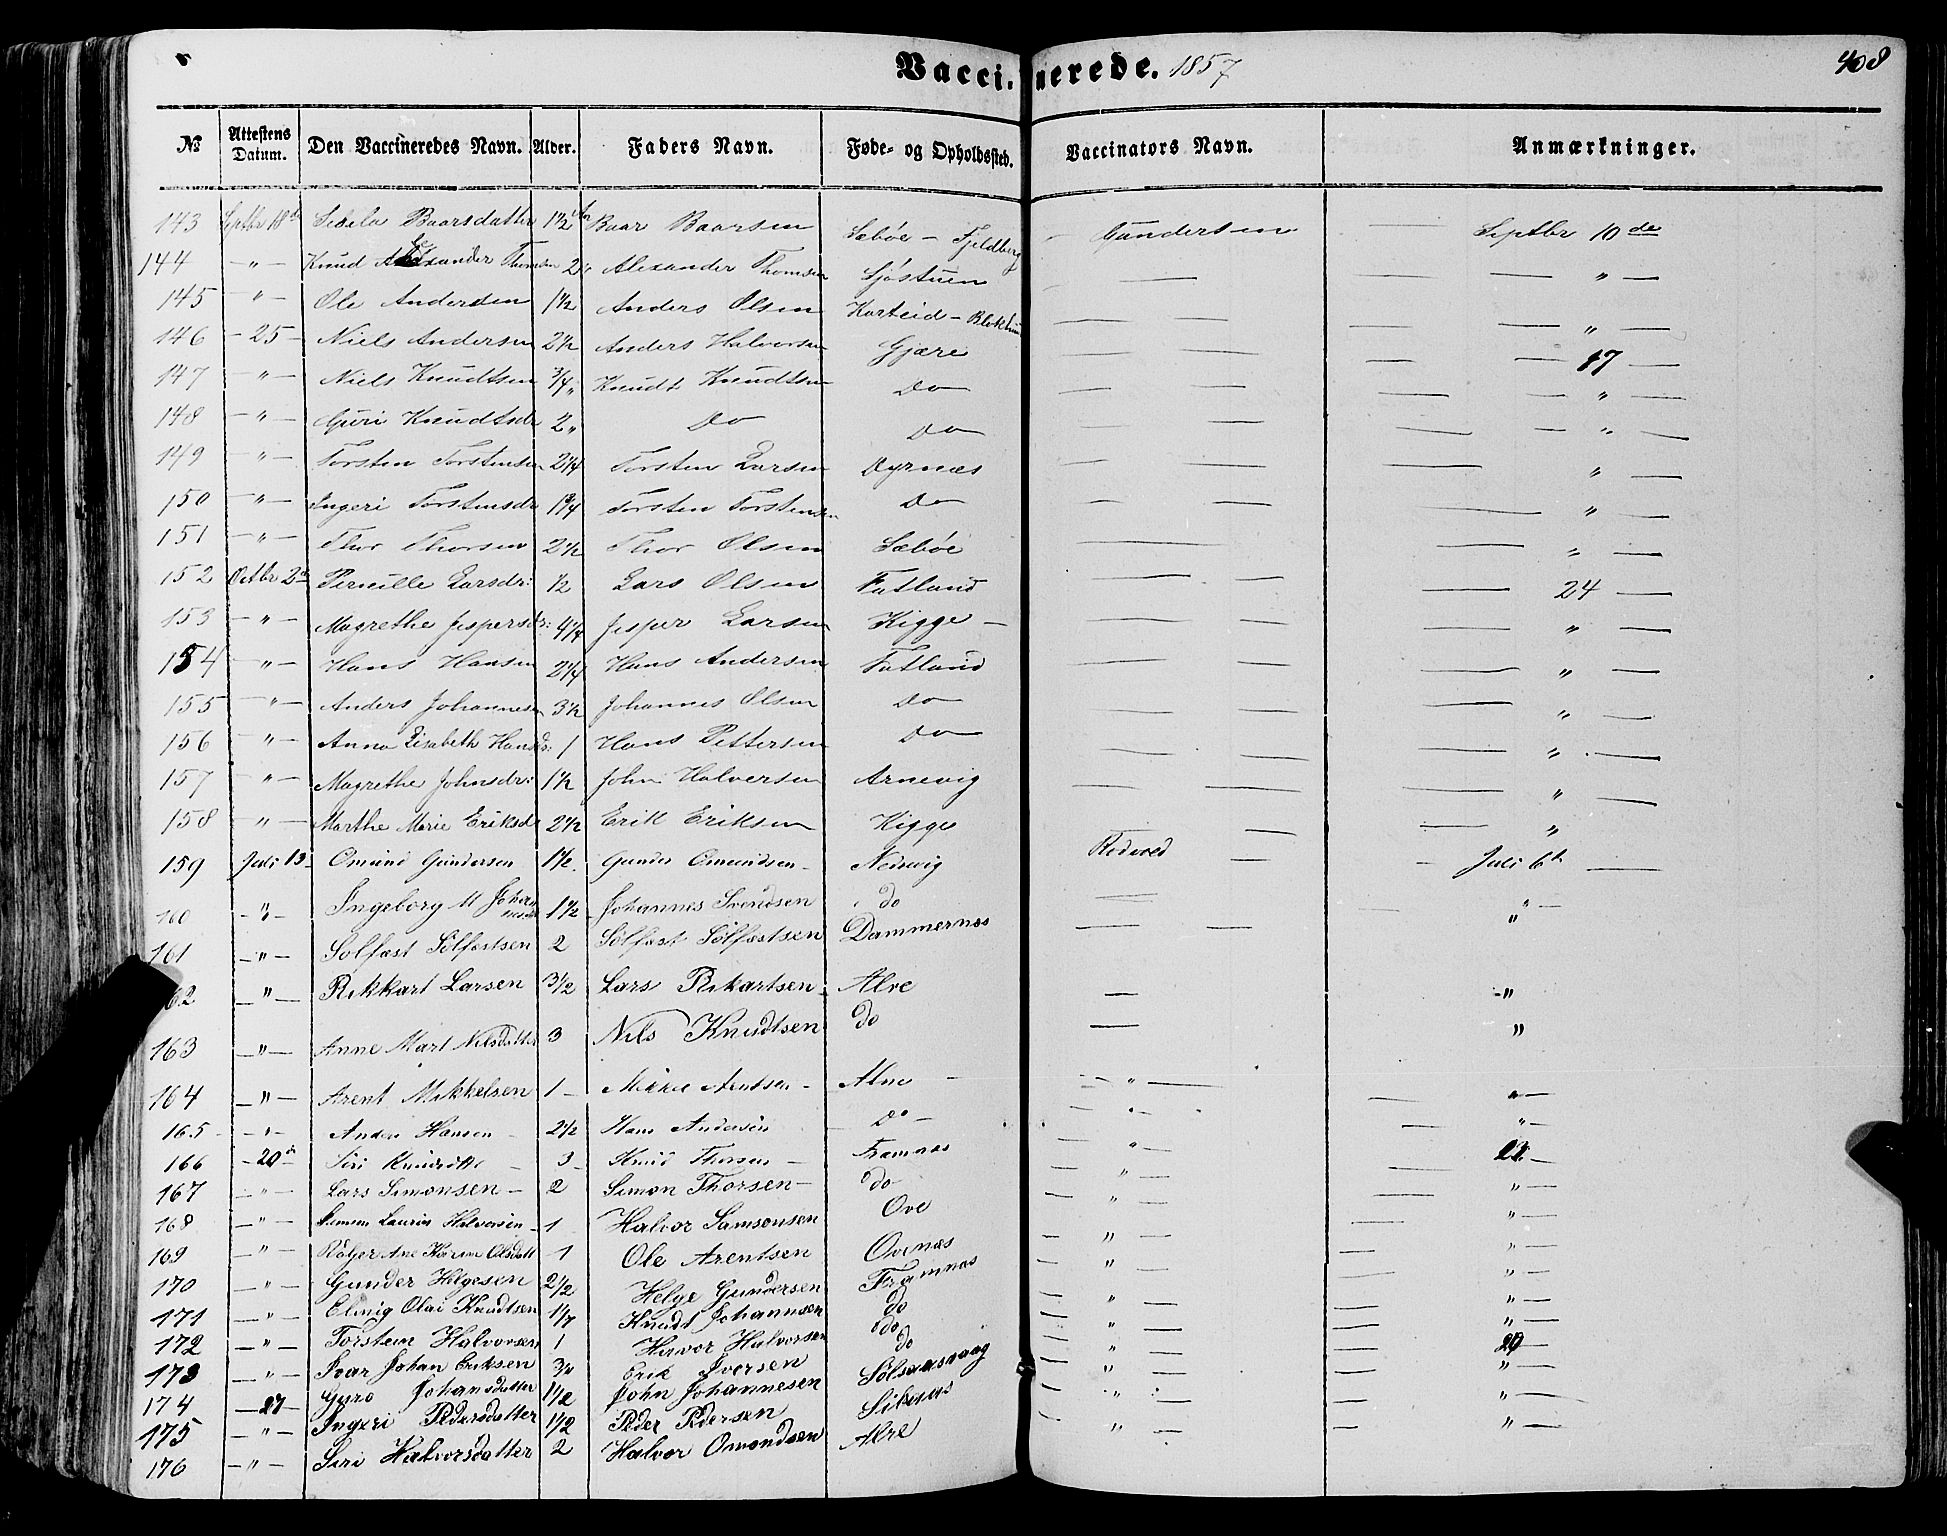 Vaccinerede. 1857 408
№ Attestens Datum. Den Vaccineredes Navn. Alder. Faders Navn. Føde- og Opholdssted. Vaccinators Navn. Anmærkninger.
143 Septbr 18de Baarsdatter 1½ Baar Baarsen Sæbøe - Fjeldberg Gundersen — Septbr 10de
144 -"- Knud Alexander Thomsen 2 Alexander Thomsen Sjøstuen — — — — " —
145 -"- Ole Andersen 1½ Anders Olsen — — — — " —
146 -25- Niels Andersen 2½ Anders Halvorsen Gjære — — — — 17 —
147 -"- Niels Knudtsen ¾ " Knudt Knudtsen Do — — — — " —
148 -"- Guri Knudtsdr 2 " Do Do — — — — " —
149 -"- Torsten Torstensen 2¼ Torsten Larsen Dyrnæs — — — " —
150 -"- Ingeri Torstensdr 1¾ Torsten Torstensen Do — — — " —
151 -"- Thor Thorsen 2½ Thor Olsen Sæbøe — — — — " —
152 Octbr 2d Pernille Larsdr: ½ Lars Olsen Fatland — — — 24 —
153 -"- Magrethe Jespersdr: 4¼ Jesper Larsen Kigge - — — — " —
154 -"- Hans Hansen 2¼ Hans Andersen Fatland — — — " —
155 -"- Anders Johannesen 3½ Johannes Olsen Do — — — " —
156 -"- Anna Elisabeth Hansdr: 1 Hans Pettersen Do — — — " —
157 -"- Magrethe Johnsdr: 1½ John Halversen Arnevig — — — " —
158 -"- Marthe Marie Eriksdr 2½ Erik Eriksen Kigge — — "
159 Juli 13 Omund Gundersen 1½ Gunder Omundsen - Nedrevig — - Juli 6te —
160 -"- Ingeborg M Johannesdr 1½ Johannes Svendsen do — — " —
161 -"- Solfæst Solfæstsen 2 Solfæst Solfæstsen Dammernæs — — "
162 -"- Rikkart Larsen 3½ Lars Rikartsen Alve — -"
163 -"- Anne Mart Nilsdatter 3 Nils Knudtsen do — "
164 -"- Arent Mikkelsen 1 - Arentsen - - " — — "-
165 -"- Hansen 2½ Hans Andersen do - - " - — "-
166 -20de Siri 3 - Knud Thorsen - Framnæs - " — — 21 -
167 -"- Lars Simonsen - 2 Simon Thorsen - do " — "-
168 -"- Laurin Halvorsen - 1 Halvor Samsonsen Ove — " — — "-
169 -"- Ane Karine Olsdatt 1 Ole Arentsen Ovenæs — " — — "-
170 -"- Gunder Helgesen 2½ Helge Gundersen Framnæs — " — "-
171 -"- Olai Knudtsen Knudt Johannsen do — " — — "-
172 -"- Torstein Halvorsen 1 Halvorsen do — " — — "-
173 -"- Ivar Johan Eriksen ¾ Erik Iversen do — " — — 20 -
174 -27- Gyro Johansdatter 1½ John Johannesen — " — — "
175 -"- Ingeri Pedersdatter 1½ Peder Pedersen — " — — " —
176 -"- Siri Halvorsdatter 2 Halvor Omondsen Alve — " — — " —